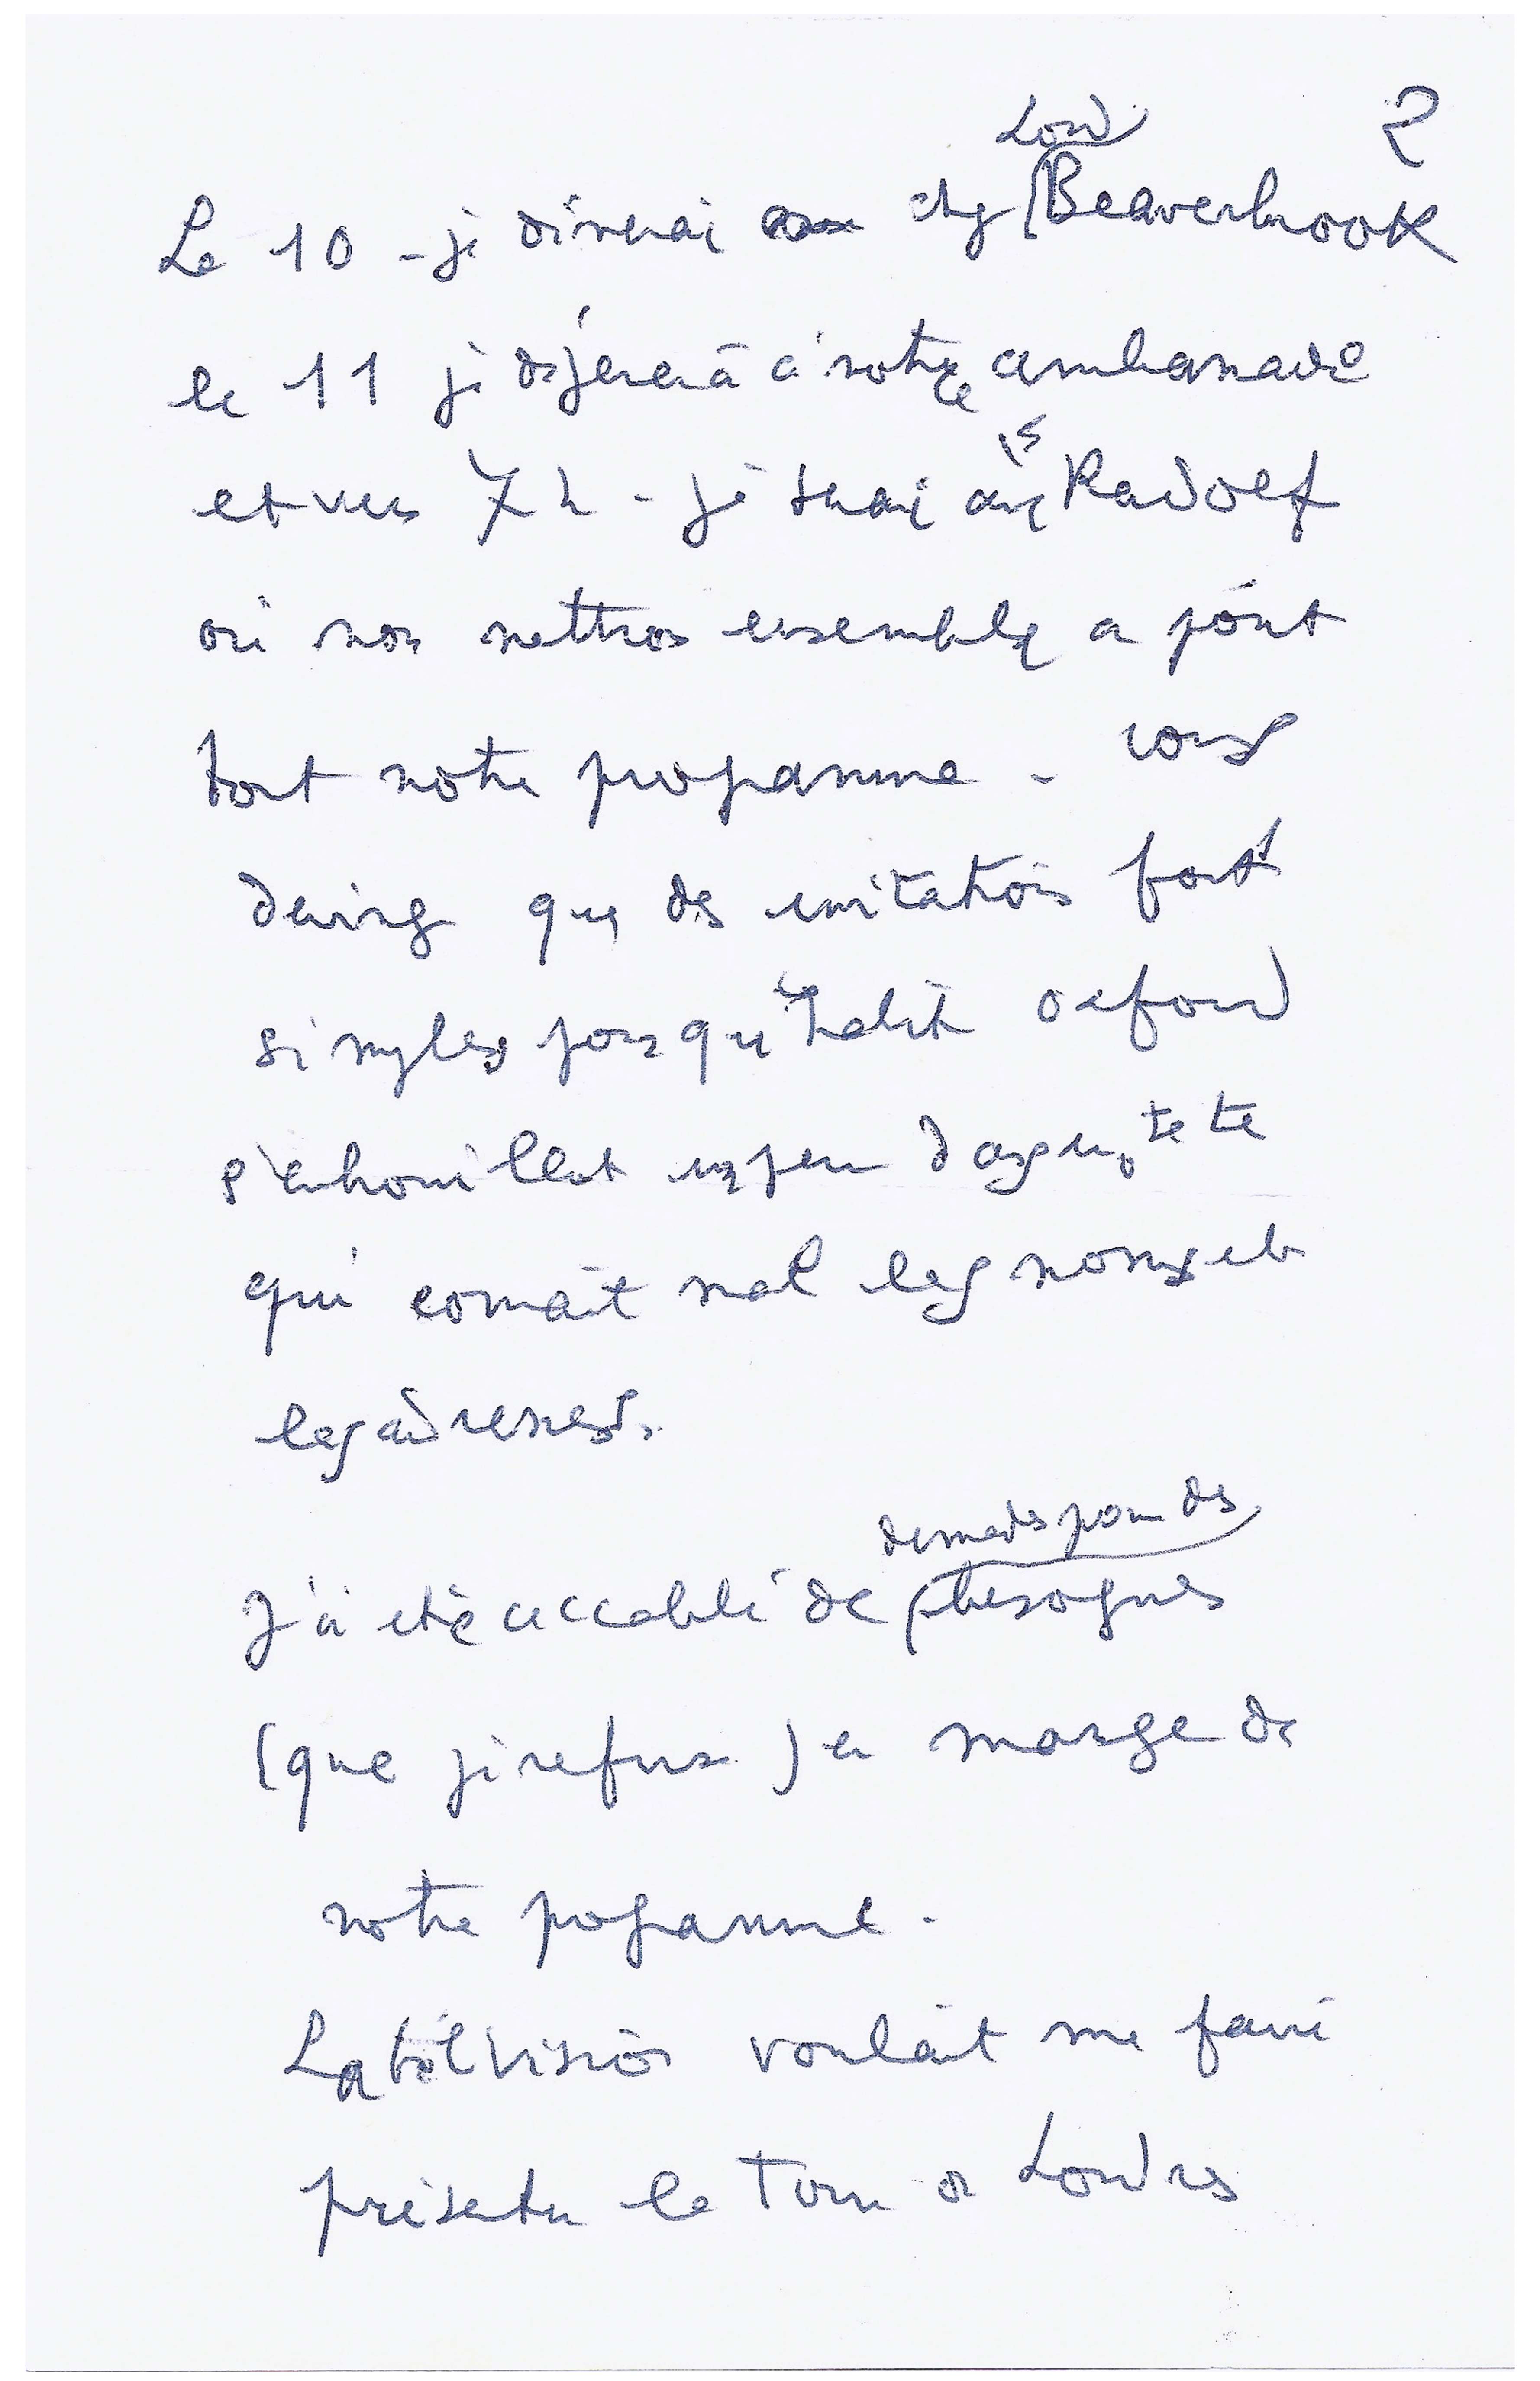 2
Lord
Le 10 - je dinerai chez Beaverbrook
le 11 je déjeunerai à notre ambassade
et vers 7 h - je serai au Radolf
où nous mettrons ensemble a point
tout notre programme - vous
devinez que des invitations fort
simples pour qui habite Oxford
s'embrouillent un peu dans une tete
qui connait mal les noms et
les adresses.
demandes pour des
J'ai été accablé de besognes
(que je refuse) en marge de
notre programme.
La télévision voulait me faire
présenter la Tour de Londres